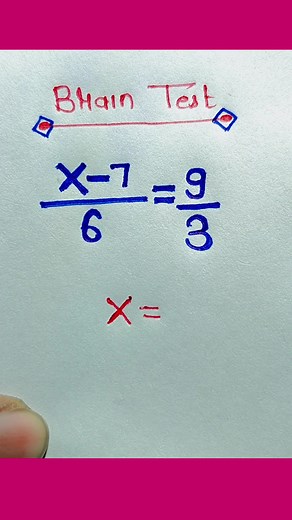 Brain Test
x-7/6 = 9/3
x =